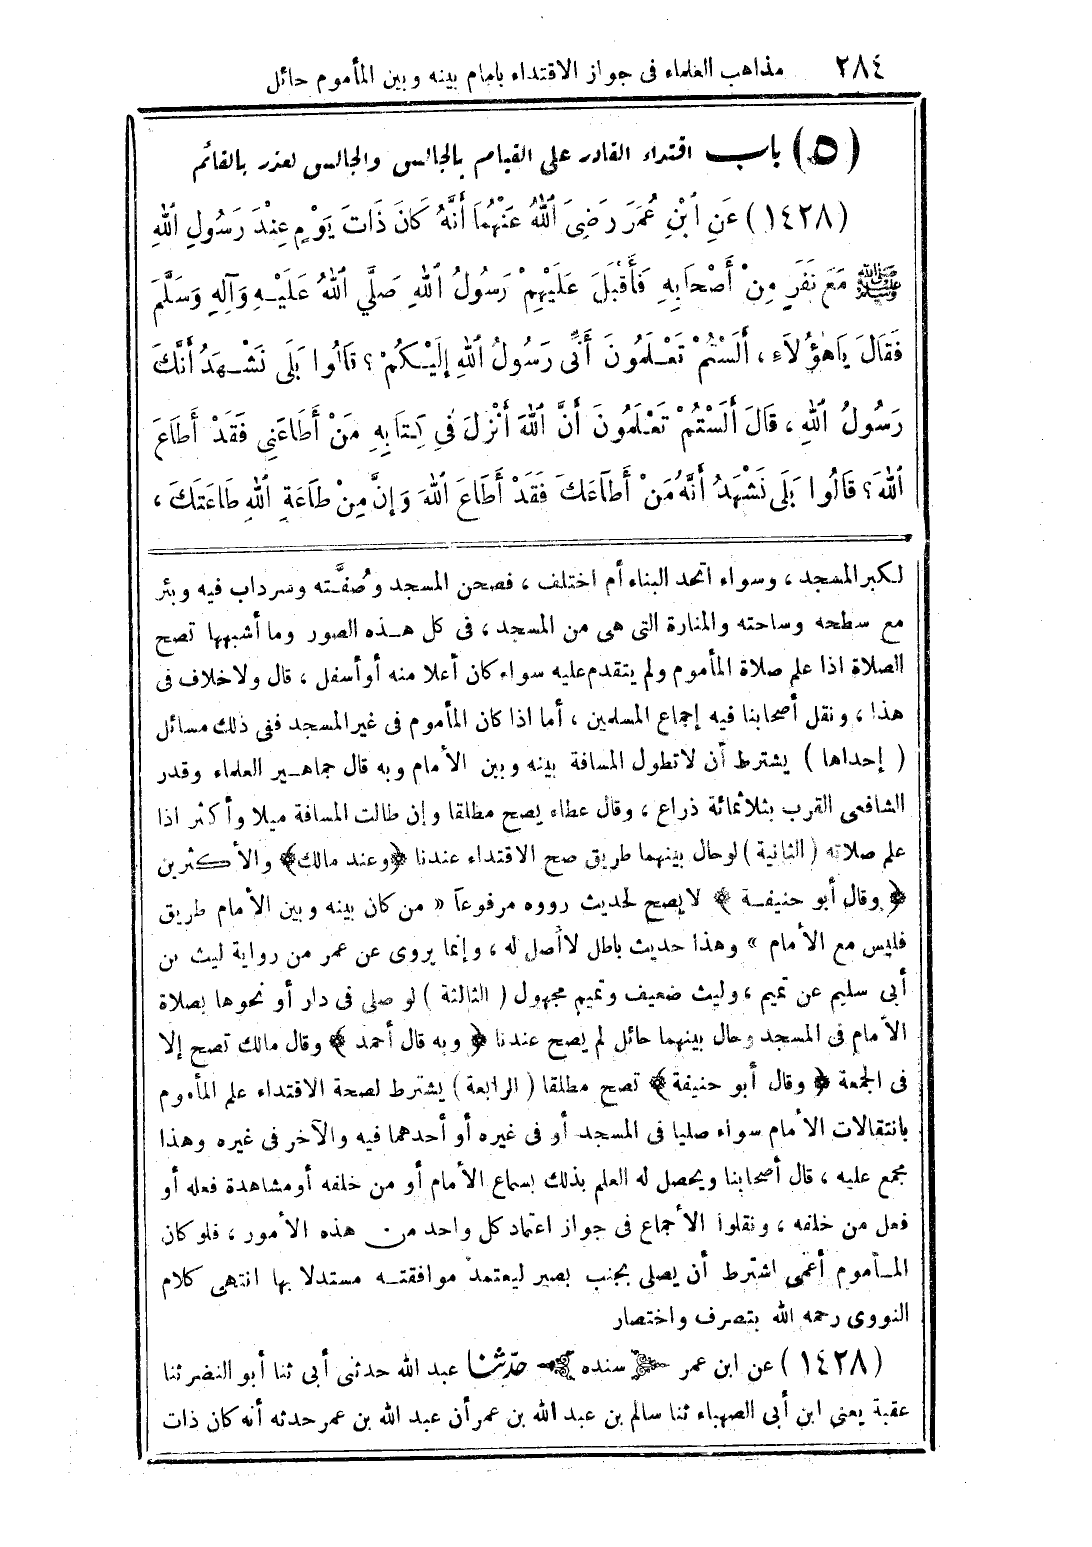 ٢٨٤ مذاهب العلماء فى جواز الاقتداء بامام بينه وبين المأموم حائل
(٥) باب اقتداء القادر على القيام بالجالس والجالس لعذر بالقائم
(١٤٢٨) عَنِ ٱبْنِ عُمَرَ رَضِىَ ٱللهُ عَنْهُمَا أَنَّهُ كَانَ ذَاتَ يَوْمٍ عِنْدَ رَسُولِ ٱللهِ
ﷺ مَعَ نَفَرٍ مِنْ أَصْحَابِهِ فَأَقْبَلَ عَلَيْهِمْ رَسُولُ ٱللهِ صَلَّي ٱللهُ عَلَيْهِ وَآلِهِ وَسَلَّمَ
فَقَالَ يَاهٰؤُلَاءِ، أَلَسْتُمْ تَعْلَمُونَ أَنِّى رَسُولُ ٱللهِ إِلَيْكُمْ؟ قَالُوا بَلَى نَشْهَدُ أَنَّكَ
رَسُولُ ٱللهِ، قَالَ أَلَسْتُمْ تَعْلَمُونَ أَنَّ ٱللهَ أَنْزَلَ فِى كِتَابِهِ مَنْ أَطَاعَنِى فَقَدْ أَطَاعَ
ٱللهَ؟ قَالُوا بَلَى نَشْهَدُ أَنَّهُ مَنْ أَطَاعَكَ فَقَدْ أَطَاعَ ٱللهَ وَإِنَّ مِنْ طَاعَةِ ٱللهِ طَاعَتَكَ،
لكبر المسجد، وسواء اتحد البناء أم اختلف، فصحن المسجد وصُفَّته وسرداب فيه وبئر
مع سطحه وساحته والمنارة التى هى من المسجد، فى كل هذه الصور وما أشبهها تصح
الصلاة اذا علم صلاة المأموم ولم يتقدم عليه سواء كان أعلا منه أو أسفل، قال ولا خلاف فى
هذا، ونقل أصحابنا فيه إجماع المسلمين، أما اذا كان المأموم فى غير المسجد ففى ذلك مسائل
(إحداها) يشترط أن لا تطول المسافة بينه وبين الأمام وبه قال جماهير العلماء وقدر
الشافعى القرب بثلاثمائة ذراع، وقال عطاء يصح مطلقا وإن طالت المسافة ميلا وأكثر اذا
علم صلاته (الثانية) لو حال بينهما طريق صح الاقتداء عندنا ﴿وعند مالك﴾ والأكثرين
﴿وقال أبو حنيفة﴾ لا يصح لحديث رووه مرفوعاً «من كان بينه وبين الأمام طريق
فليس مع الأمام» وهذا حديث باطل لا أصل له، وإنما يروى عن عمر من رواية ليث بن
أبى سليم عن تميم، وليث ضعيف وتميم مجهول (الثالثة) لو صلى فى دار أو نحوها بصلاة
الأمام فى المسجد وحال بينهما حائل لم يصح عندنا ﴿وبه قال أحمد﴾ وقال مالك تصح إلا
فى الجمعة ﴿وقال أبو حنيفة﴾ تصح مطلقا (الرابعة) يشترط لصحة الاقتداء علم المأموم
بانتقالات الأمام سواء صليا فى المسجد أو فى غيره أو أحدهما فيه والآخر فى غيره وهذا
مجمع عليه، قال أصحابنا ويحصل له العلم بذلك بسماع الأمام أو من خلفه أو مشاهدة فعله أو
فعل من خلفه، ونقلوا الأجماع فى جواز اعتماد كل واحد من هذه الأمور، فلو كان
المأموم أعمى اشترط أن يصلى بجنب بصير ليعتمد موافقته مستدلا بها انتهى كلام
النووى رحمه الله بتصرف واختصار
(١٤٢٨) عن ابن عمر سنده حدّثنا عبد الله حدثنى أبى ثنا أبو النضر ثنا
عقبة يعنى ابن أبى الصهباء ثنا سالم بن عبد الله بن عمر أن عبد الله بن عمر حدثه أنه كان ذات